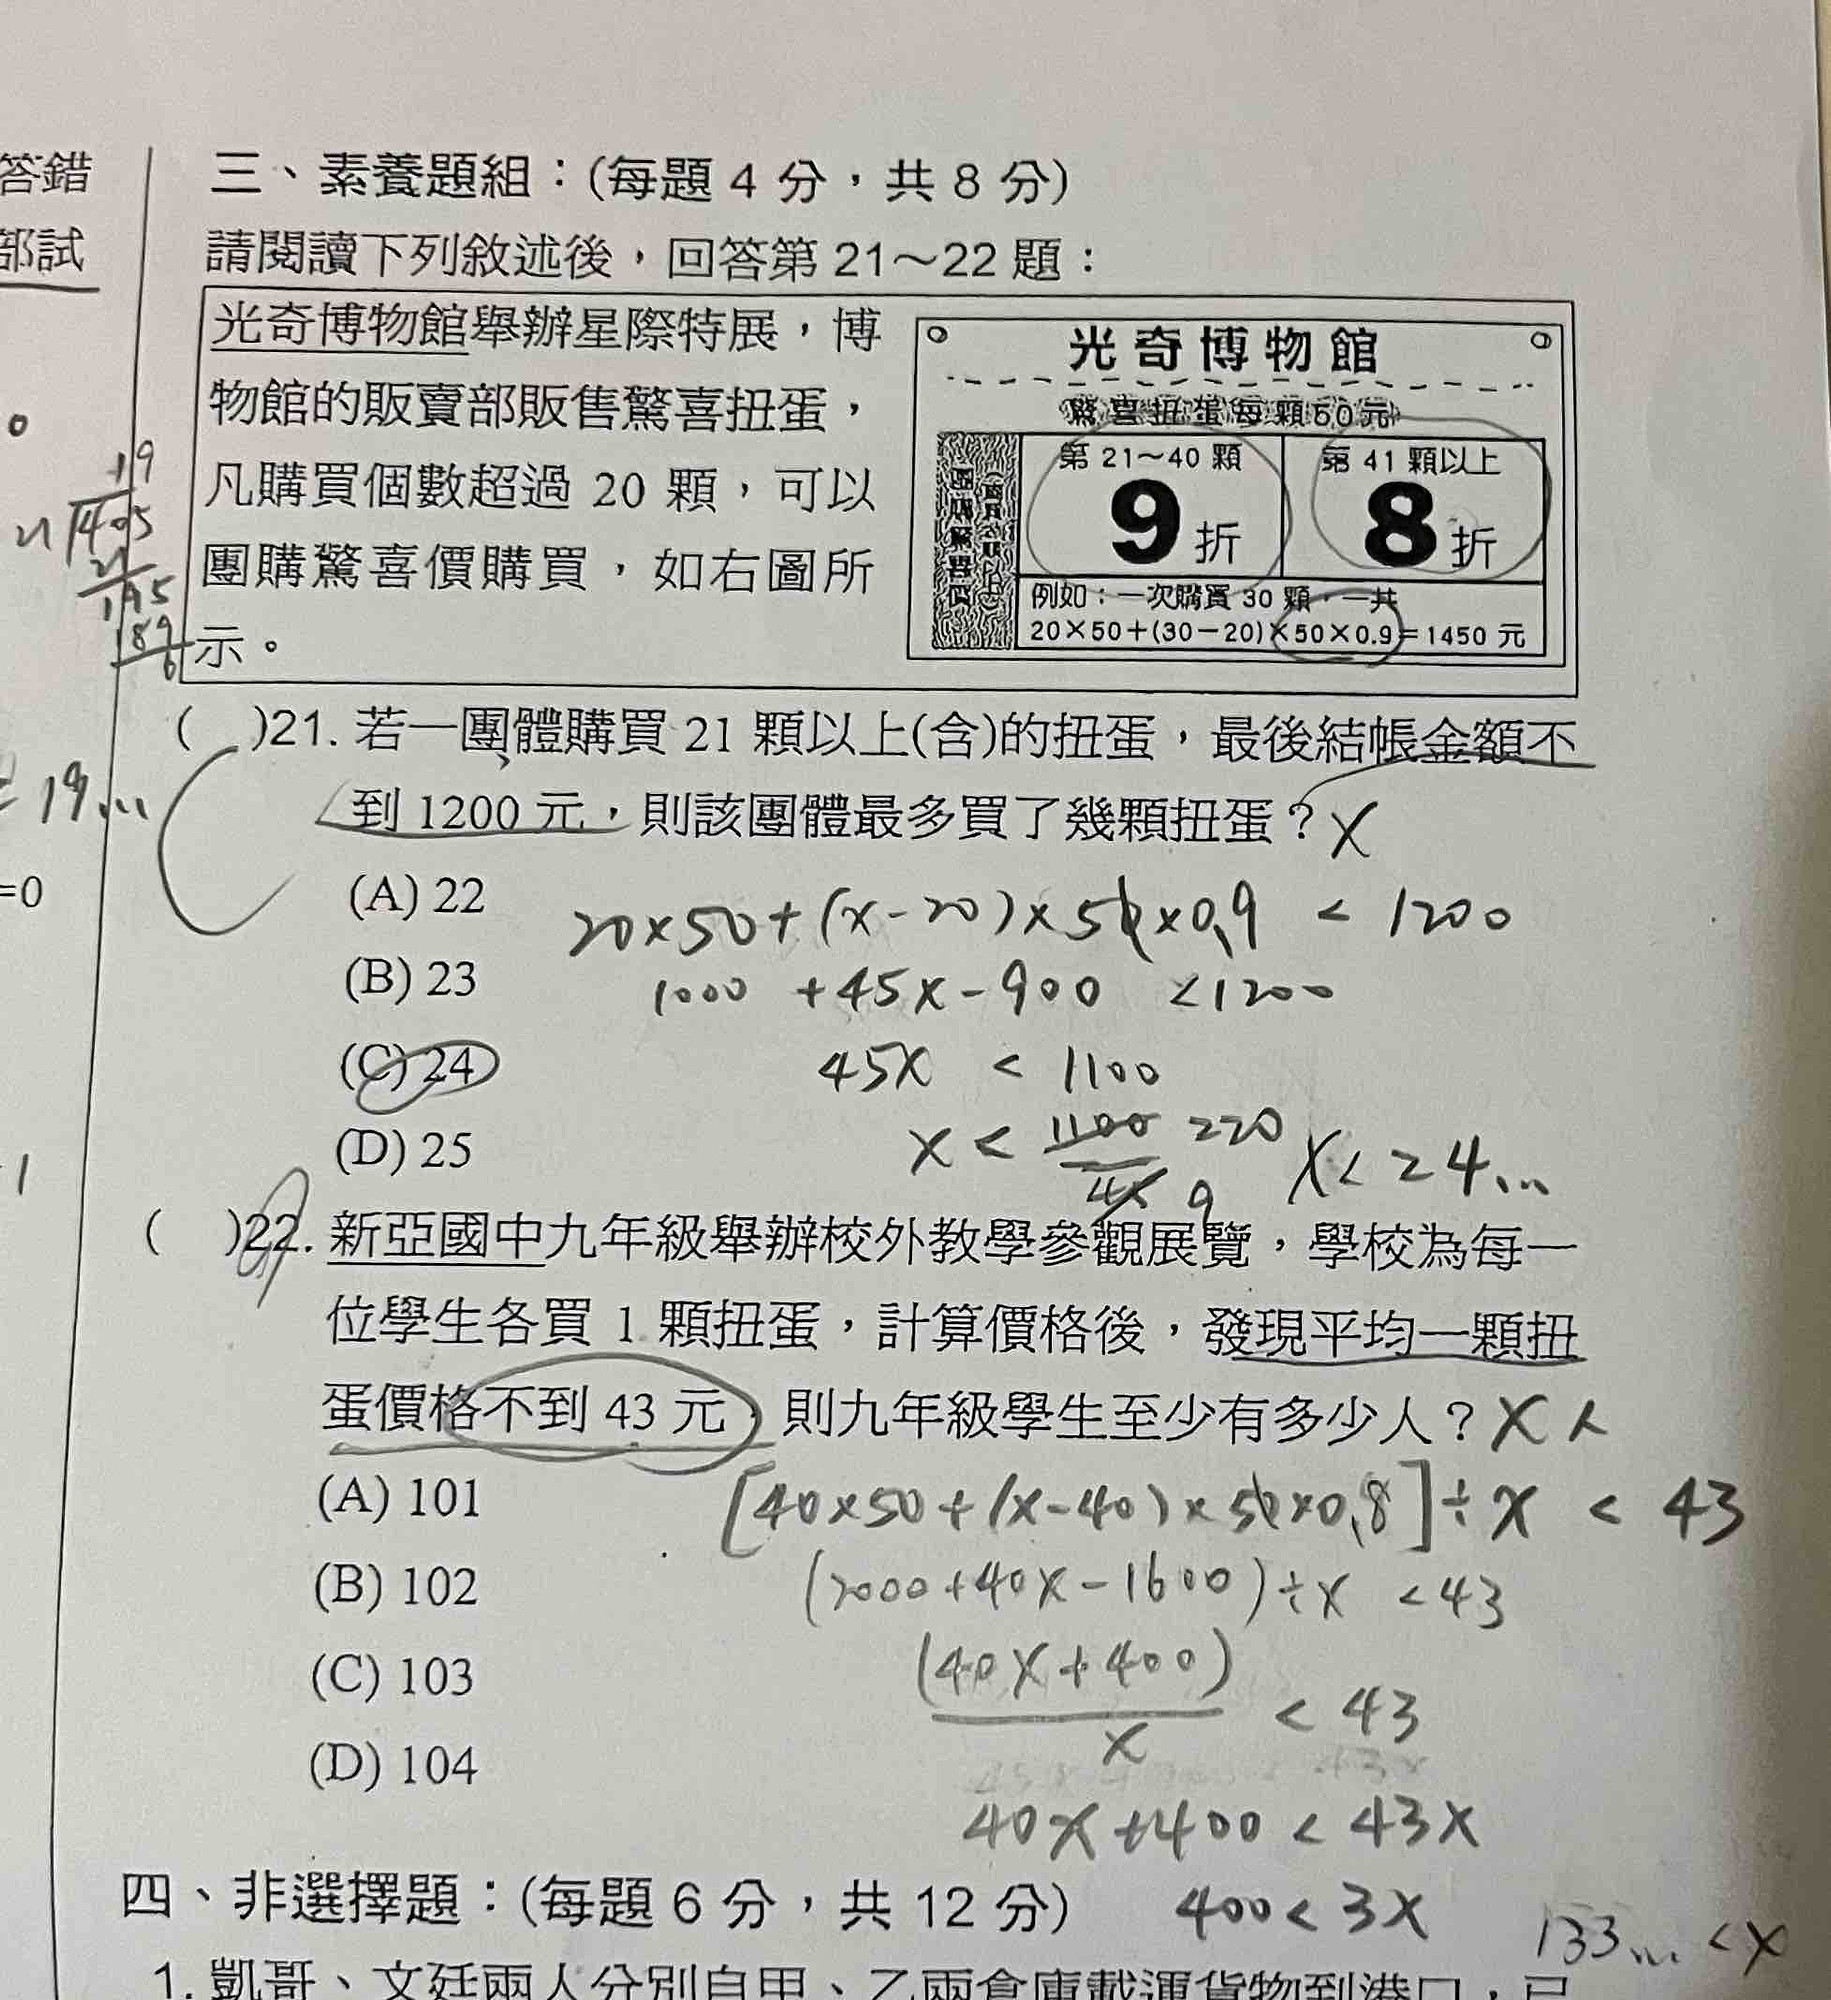 答錯
部試
三、素養題組：(每題 4 分，共 8 分)
請閱讀下列敘述後，回答第 21～22 題：
光奇博物館舉辦星際特展，博
物館的販賣部販售驚喜扭蛋，
凡購買個數超過 20 顆，可以
團購驚喜價購買，如右圖所
示。
光奇博物館
驚喜扭蛋每顆50元
團購驚喜價
第 21～40 顆
9折
第 41 顆以上
8折
例如：一次購買 30 顆，一共
20×50＋(30－20)×50×0.9＝1450 元
19
21
405
21
195
189
6
= 19...
=0
( )21. 若一團體購買 21 顆以上(含)的扭蛋，最後結帳金額不
到 1200 元，則該團體最多買了幾顆扭蛋？ x
(A) 22
(B) 23
(C) 24
(D) 25
20×50+(x-20)×50×0.9 < 1200
1000 +45x-900 <1200
45x < 1100
x < 1100 220
45 9
x<24...
( )22. 新亞國中九年級舉辦校外教學參觀展覽，學校為每一
位學生各買 1 顆扭蛋，計算價格後，發現平均一顆扭
蛋價格不到 43 元，則九年級學生至少有多少人？ x人
(A) 101
(B) 102
(C) 103
(D) 104
[40×50+(x-40)×50×0.8]÷x < 43
(2000+40x-1600)÷x <43
(40x+400)
x
< 43
40x+400<43x
400<3x
133...<x
四、非選擇題：(每題 6 分，共 12 分)
1. 凱哥、文廷兩人分別自甲、乙兩倉庫載運貨物到港口，已